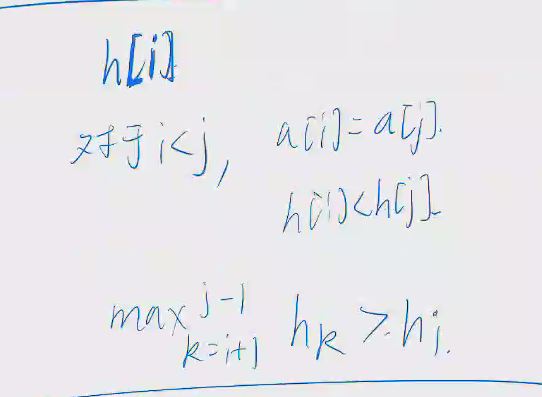 h[i]
对于 i<j, a[i]=a[j].
h[i]<h[j].
max_{k=i+1}^{j-1} h_k > h_j.